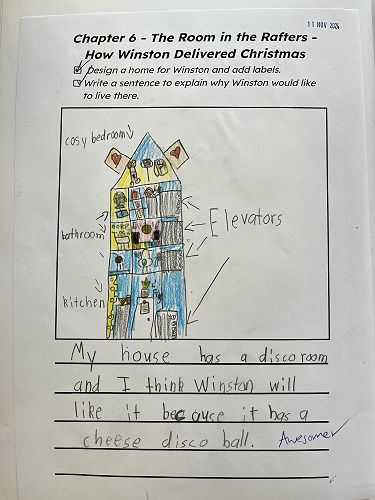 11 NOV 2024
Chapter 6 - The Room in the Rafters -
How Winston Delivered Christmas
Design a home for Winston and add labels.
Write a sentence to explain why Winston would like
to live there.
cosy bedroom
bathroom
Elevators
kitchen
My house has a disco room
and I think Winston will
like it because it has a
cheese disco ball. Awesome